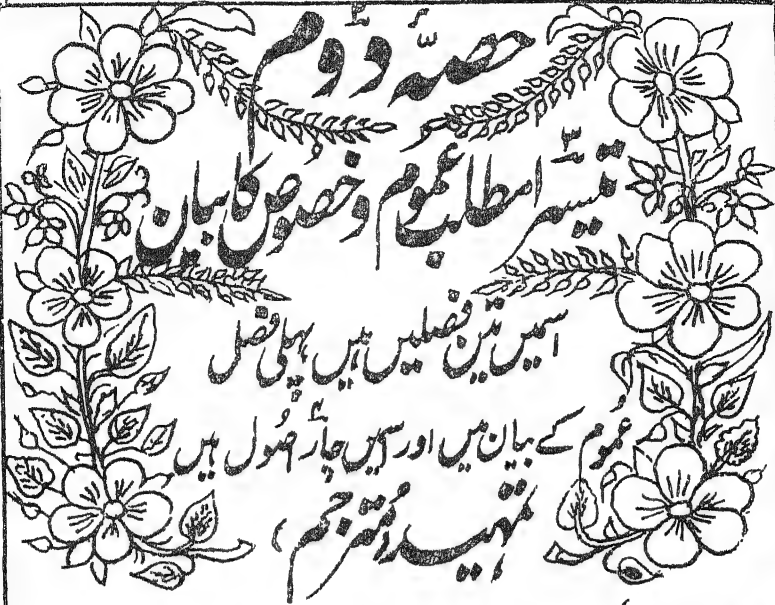 حصہ دوم
تیسرا مطلب عموم و خصوص کا بیان
اسمیں تین فصلیں ہیں پہلی فصل
عموم کے بیان میں اور اسمیں چار اصول ہیں
تمہید مترجم،